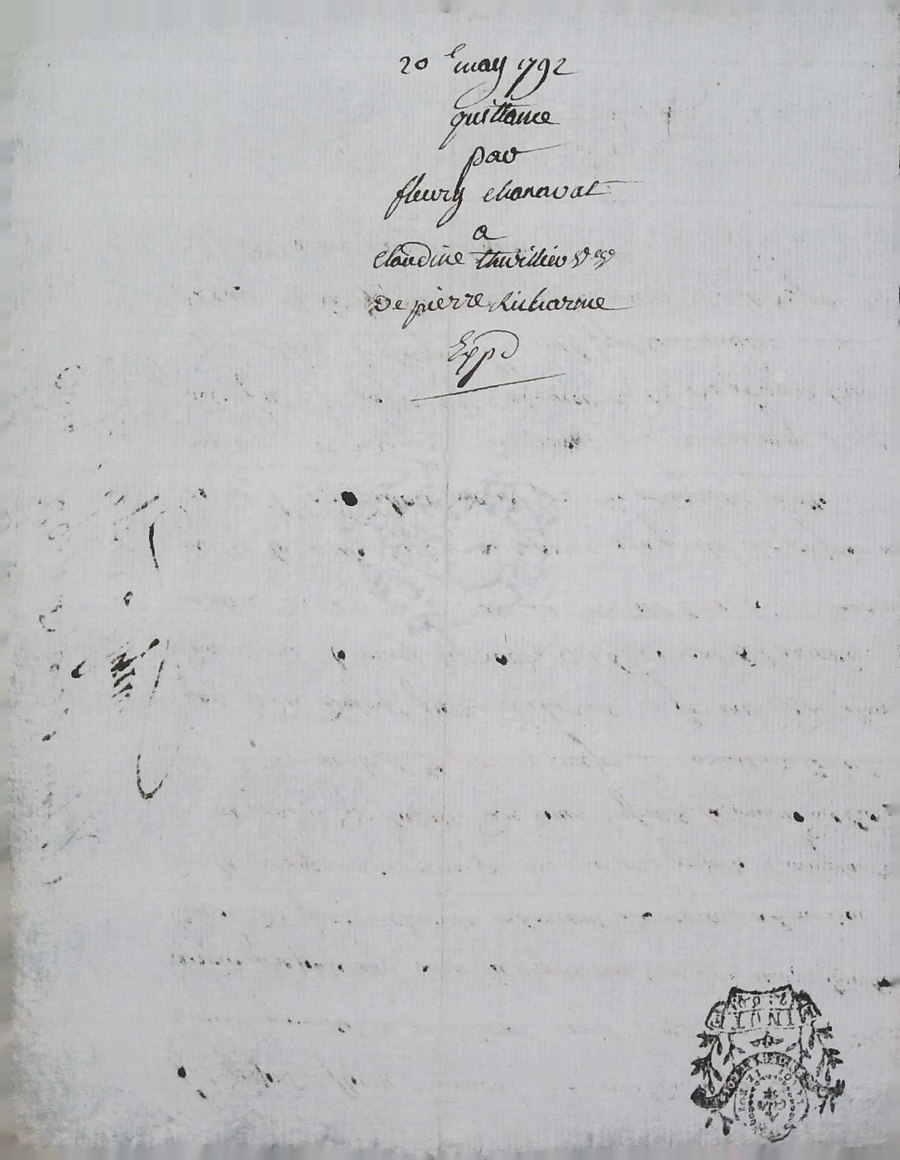 20 may 1792
quittance
par
fleury chanavat
a
claudine thuillier v.ve
De pierre Richarme
Expd
MINUTE